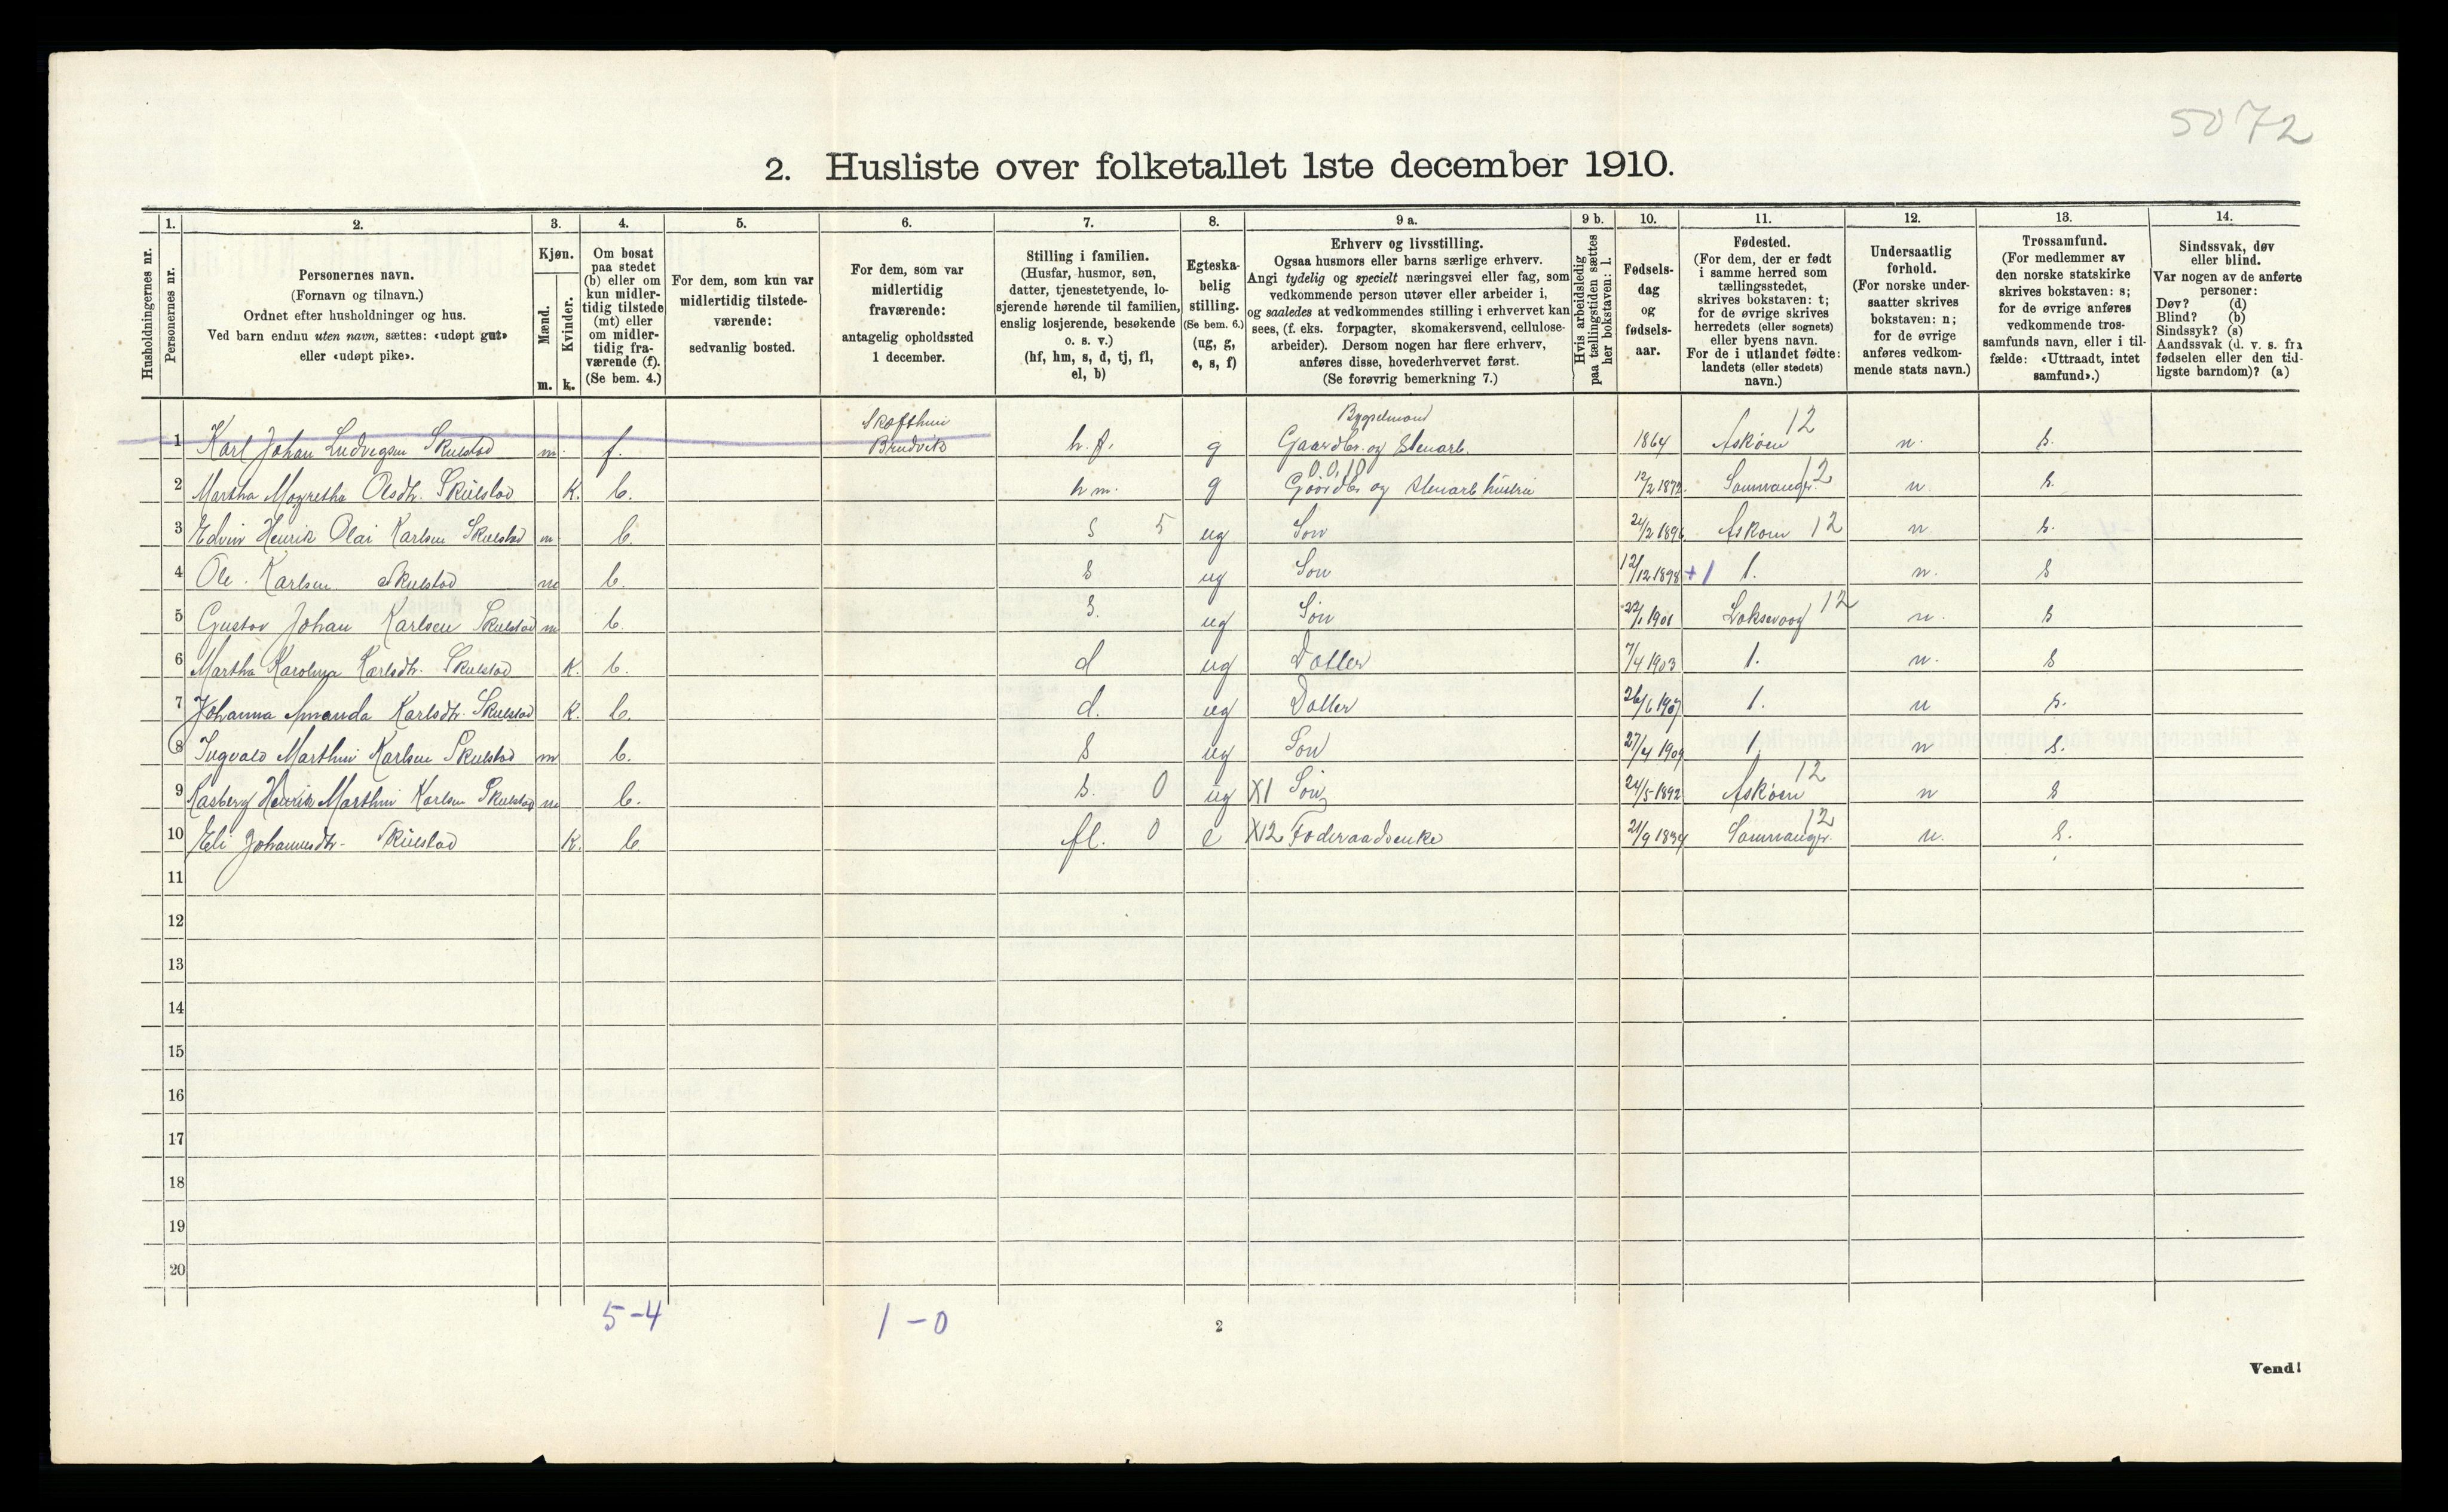 5072
2. Husliste over folketallet 1ste december 1910.
Husholdningernes nr.
1. Personernes nr.
2. Personernes navn.
(Fornavn og tilnavn.)
Ordnet efter husholdninger og hus.
Ved barn endnu uten navn, sættes: «udøpt gut»
eller «udøpt pike».
3. Kjøn.
Mænd. m.
Kvinder. k.
4. Om bosat
paa stedet
(b) eller om
kun midler-
tidig tilstede
(mt) eller
om midler-
tidig fra-
værende (f).
(Se bem. 4.)
5. For dem, som kun var
midlertidig tilstede-
værende:
sedvanlig bosted.
6. For dem, som var
midlertidig
fraværende:
antagelig opholdssted
1 december.
7. Stilling i familien.
(Husfar, husmor, søn,
datter, tjenestetyende, lo-
sjerende hørende til familien,
enslig losjerende, besøkende
o. s. v.)
(hf, hm, s, d, tj, fl,
el, b)
8. Egteska-
belig
stilling.
(Se bem. 6.)
(ug, g,
e, s, f)
9 a. Erhverv og livsstilling.
Ogsaa husmors eller barns særlige erhverv.
Angi tydelig og specielt næringsvei eller fag, som
vedkommende person utøver eller arbeider i,
og saaledes at vedkommendes stilling i erhvervet kan
sees, (f. eks. forpagter, skomakersvend, cellulose-
arbeider). Dersom nogen har flere erhverv,
anføres disse, hovederhvervet først.
(Se forøvrig bemerkning 7.)
9 b. Hvis arbeidsledig
paa tællingstiden sættes
her bokstaven: l.
10. Fødsels-
dag
og
fødsels-
aar.
11. Fødested.
(For dem, der er født
i samme herred som
tællingsstedet,
skrives bokstaven: t;
for de øvrige skrives
herredets (eller sognets)
eller byens navn.
For de i utlandet fødte:
landets (eller stedets)
navn.)
12. Undersaatlig
forhold.
(For norske under-
saatter skrives
bokstaven: n;
for de øvrige
anføres vedkom-
mende stats navn.)
13. Trossamfund.
(For medlemmer av
den norske statskirke
skrives bokstaven: s;
for de øvrige anføres
vedkommende tros-
samfunds navn, eller i til-
fælde: «Uttraadt, intet
samfund».)
14. Sindssvak, døv
eller blind.
Var nogen av de anførte
personer:
Døv? (d)
Blind? (b)
Sindssyk? (s)
Aandssvak (d. v. s. fra
fødselen eller den tid-
ligste barndom)? (a)
Skofthun Bygselmand
1 Karl Johan Ludvigsen Skulstad m. f. Bruvik h.f. g Gaardbr. og Stenarb. 1864 Askøen 12 n. s.
0.0.10
2 Martha Magretha Olsdtr. Skulstad K. b. hm. g Gaardbr og Stenarb hustru 12/2 1872. Samnanger. 12 n. s.
3 Edvin Henrik Olai Karlsen Skulstad m b. s 5 ug Søn 24/2 1896 Askøen 12 n s.
4 Ole. Karlsen Skulstad m b. s ug Søn 12/12 1898 +1 1. n. s
5 Gustav Johan Karlsen Skulstad m b. s. ug Søn 22/1 1901 Laksevaag 12 n. s
6 Martha Karolina Karlsdtr. Skulstad K. b. d ug Datter 7/4 1903 1. n. s
7 Johanna Amanda Karlsdtr. Skulstad K. b. d. ug Datter 26/6 1907 1. n s.
8 Ingvald Marthin Karlsen Skulstad m b. s ug Søn 27/4 1909 1. n s.
9 Henrik Marthin Karlsen Skulstad m b. s. 0 ug X1 Søn 24/5 1892 Askøen 12 n s
10 Eli Johannesdtr. Skulstad K. b fl. 0 e X12 Føderaadsenke 21/9 1834 Samnanger. 12 n. s.
11
12
13
14
15
16
17
18
19
20
5-4 1-0
2
Vend!